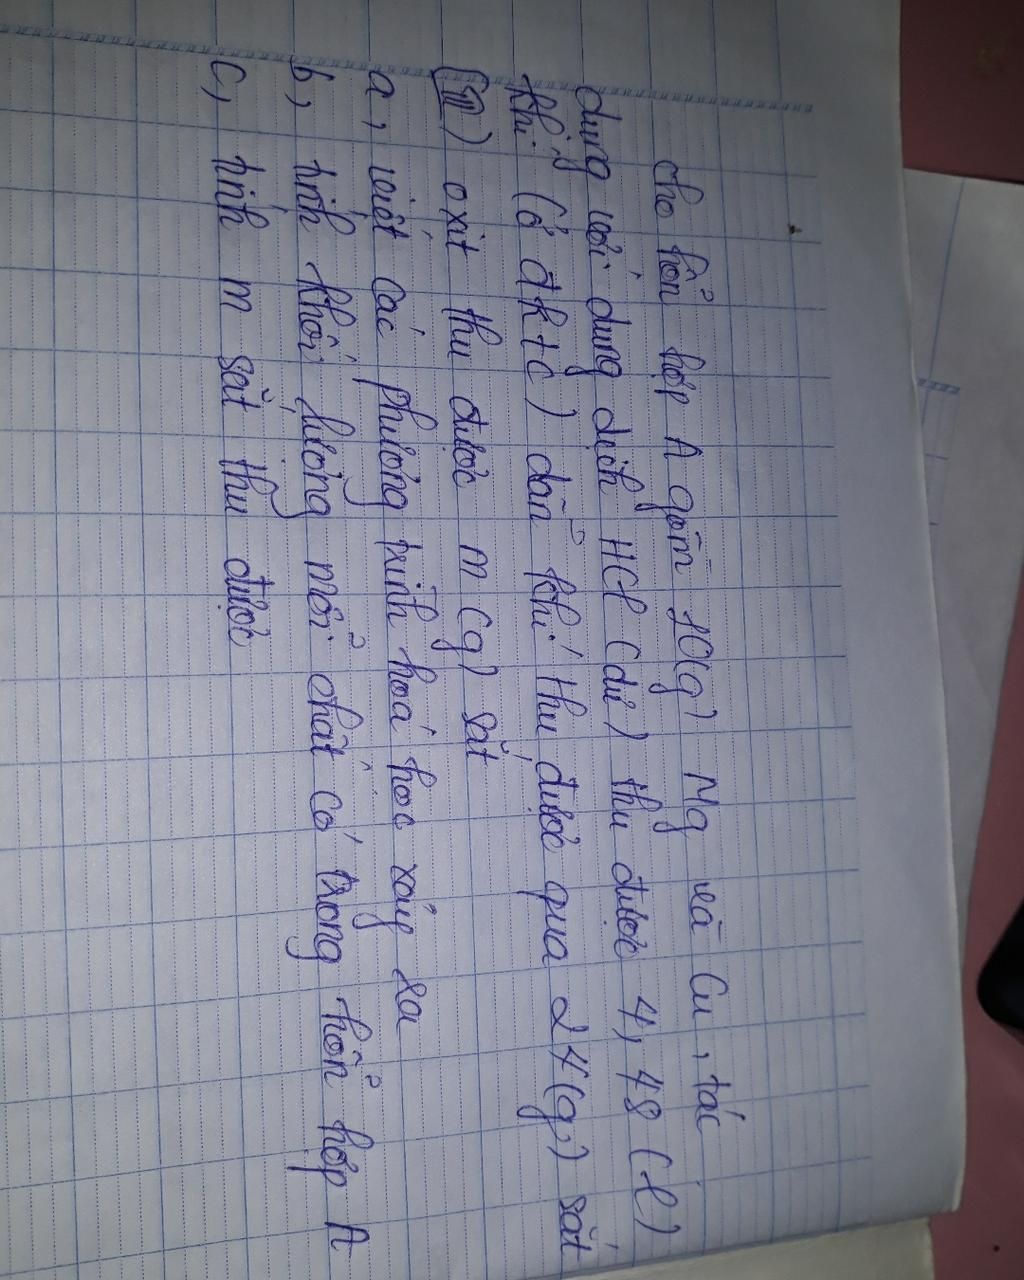 cho hỗn hợp A gồm 10(g) Mg và Cu, tác
dụng với dung dịch HCl (dư) thu được 4,48 (l)
khí (ở đktc) dẫn khí thu được qua 24(g) sắt
(III) oxit thu được m (g) sắt
a, viết các phương trình hoá học xảy ra
b, tính khối lượng mỗi chất có trong hỗn hợp A
c, tính m sắt thu được